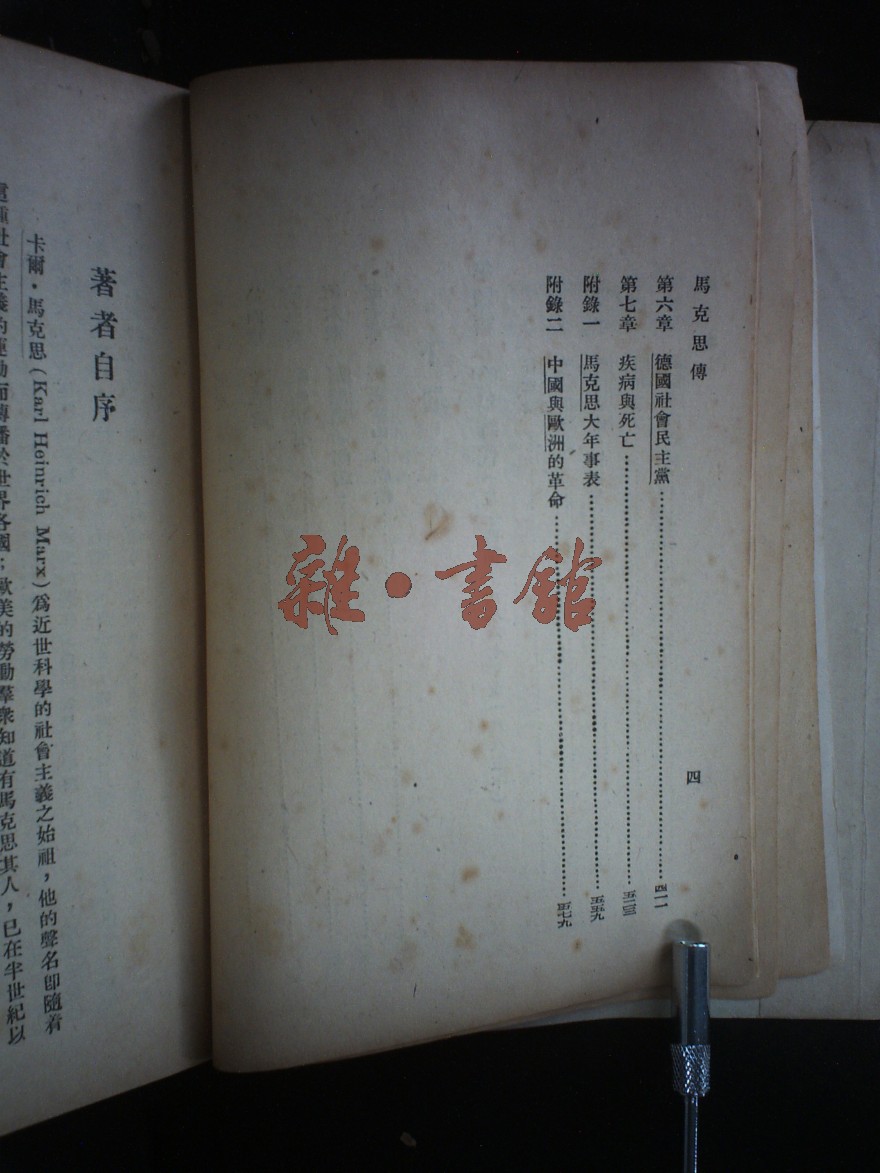 馬克思傳
四
第六章 德國社會民主黨……四一一
第七章 疾病與死亡……五二三
附錄一 馬克思大年事表……五五九
附錄二 中國與歐洲的革命……五七九
著者自序
卡爾·馬克思(Karl Heinrich Marx)爲近世科學的社會主義之始祖,他的聲名即隨着
這種社會主義的運動而傳播於世界各國;歐美的勞動羣衆知道有馬克思其人,已在半世紀以
雜·書館